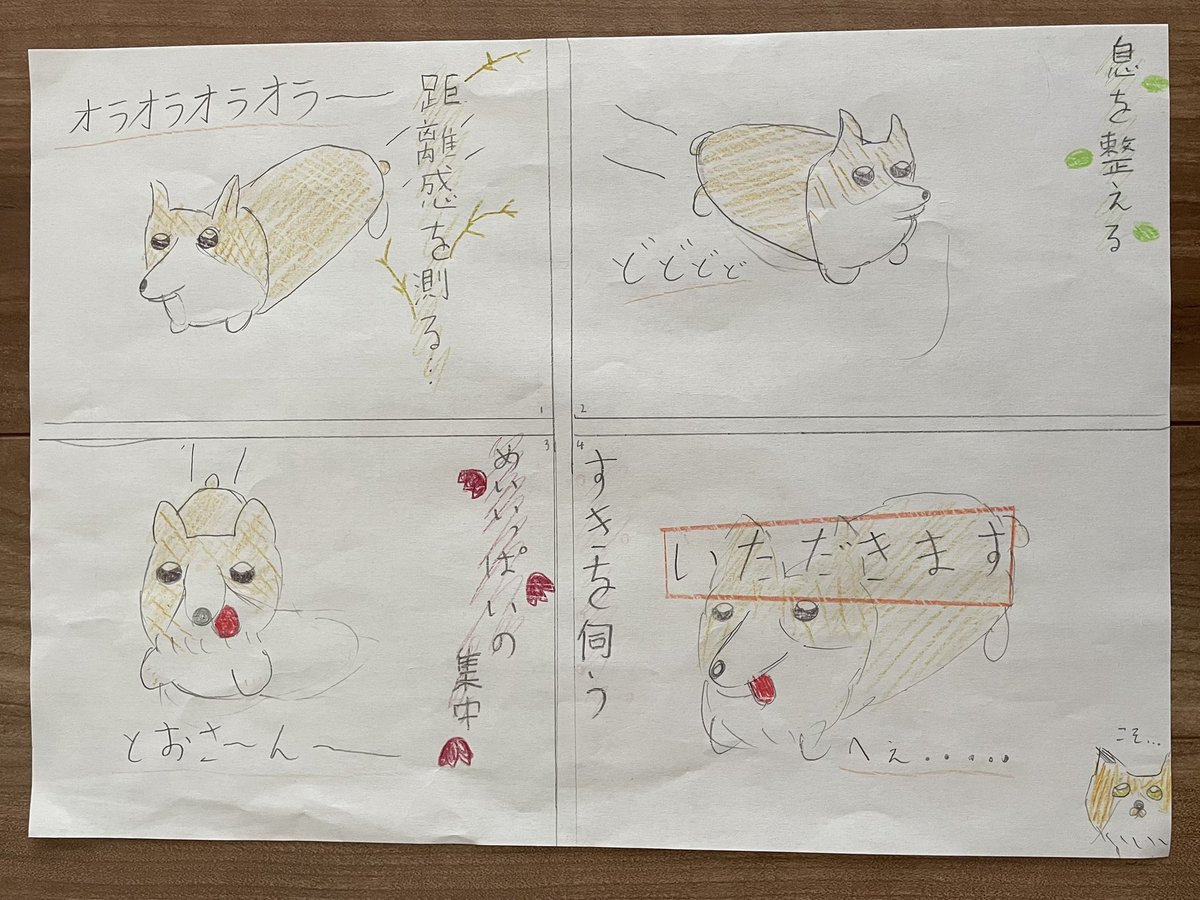 オラオラオラオラー
距離感を測る・・
1
息を整える
どどどど
2
めいいっぱいの
集中
とおさ〜ん〜
3
4
すきを伺う
いただきます
へぇ・・・・・・
こそ...